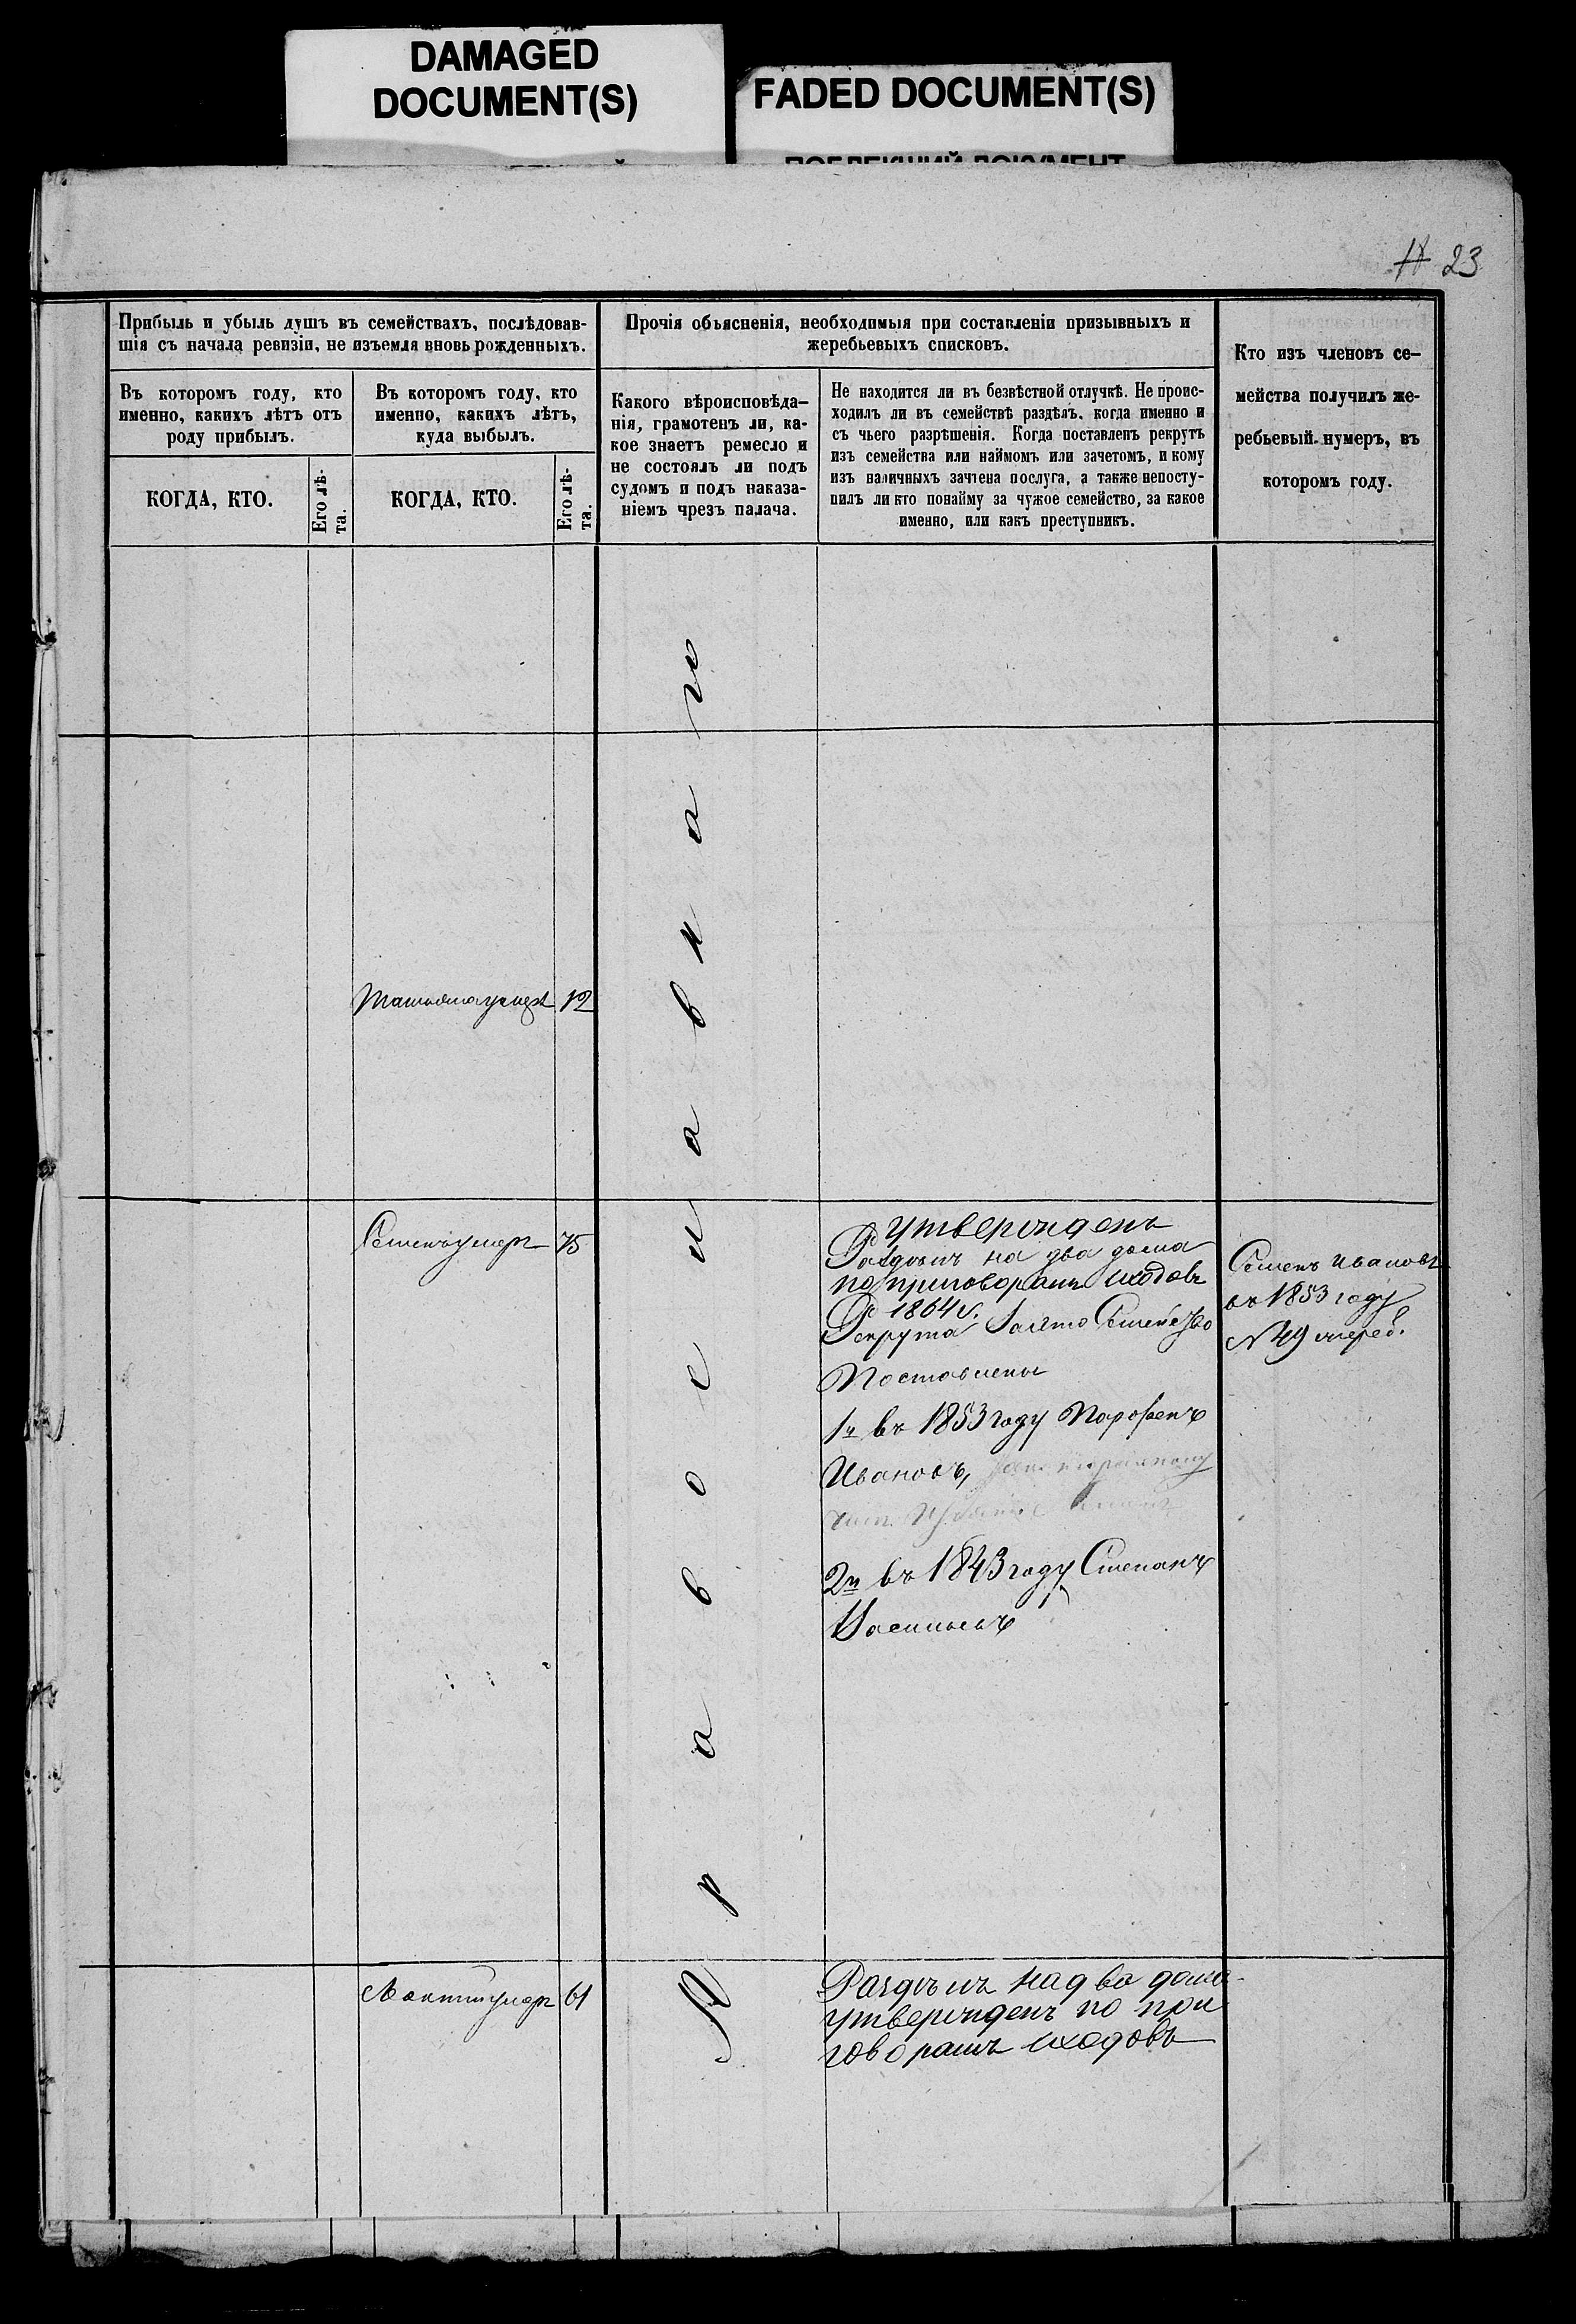 DAMAGED
DOCUMENT(S)
FADED DOCUMENT(S)
ПОБЛЕКШИЙ ДОКУМЕНТ
23
Прибыль и убыль душъ въ семействахъ, послѣдовав-
шія съ начала ревизіи, не изъемля вновь рожденныхъ.
Въ которомъ году, кто
именно, какихъ лѣтъ отъ
роду прибылъ.
Въ которомъ году, кто
именно, какихъ лѣтъ,
куда выбылъ.
КОГДА, КТО.
Его лѣ-
та.
КОГДА, КТО.
Его лѣ-
та.
Прочія объясненія, необходимыя при составленіи призывныхъ и
жеребьевыхъ списковъ.
Какого вѣроисповѣда-
нія, грамотенъ ли, ка-
кое знаетъ ремесло и
не состоялъ ли подъ
судомъ и подъ наказа-
ніемъ чрезъ палача.
Не находится ли въ безвѣстной отлучкѣ. Не проис-
ходилъ ли въ семействѣ раздѣлъ, когда именно и
съ чьего разрѣшенія. Когда поставленъ рекрутъ
изъ семейства или наймомъ или зачетомъ, и кому
изъ наличныхъ зачтена послуга, а также непосту-
пилъ ли кто понайму за чужое семейство, за какое
именно, или какъ преступникъ.
Кто изъ членовъ се-
мейства получилъ же-
ребьевый нумеръ, въ
которомъ году.
Православнаго
умер 12
Семенъ умеръ 75
утвержденъ
Раздѣлъ на два дома
по приговорамъ сходовъ
1864 г.
Рекрута Семейство
Поставлены
1й въ 1853 году Парфенъ
Ивановъ,
2й въ 1843 году Степанъ
Васильевъ
Семенъ Ивановъ
въ 1853 году
№ 49 очеред.
умеръ 61
Раздѣлъ на два дома
утвержденъ по при
говорамъ сходовъ